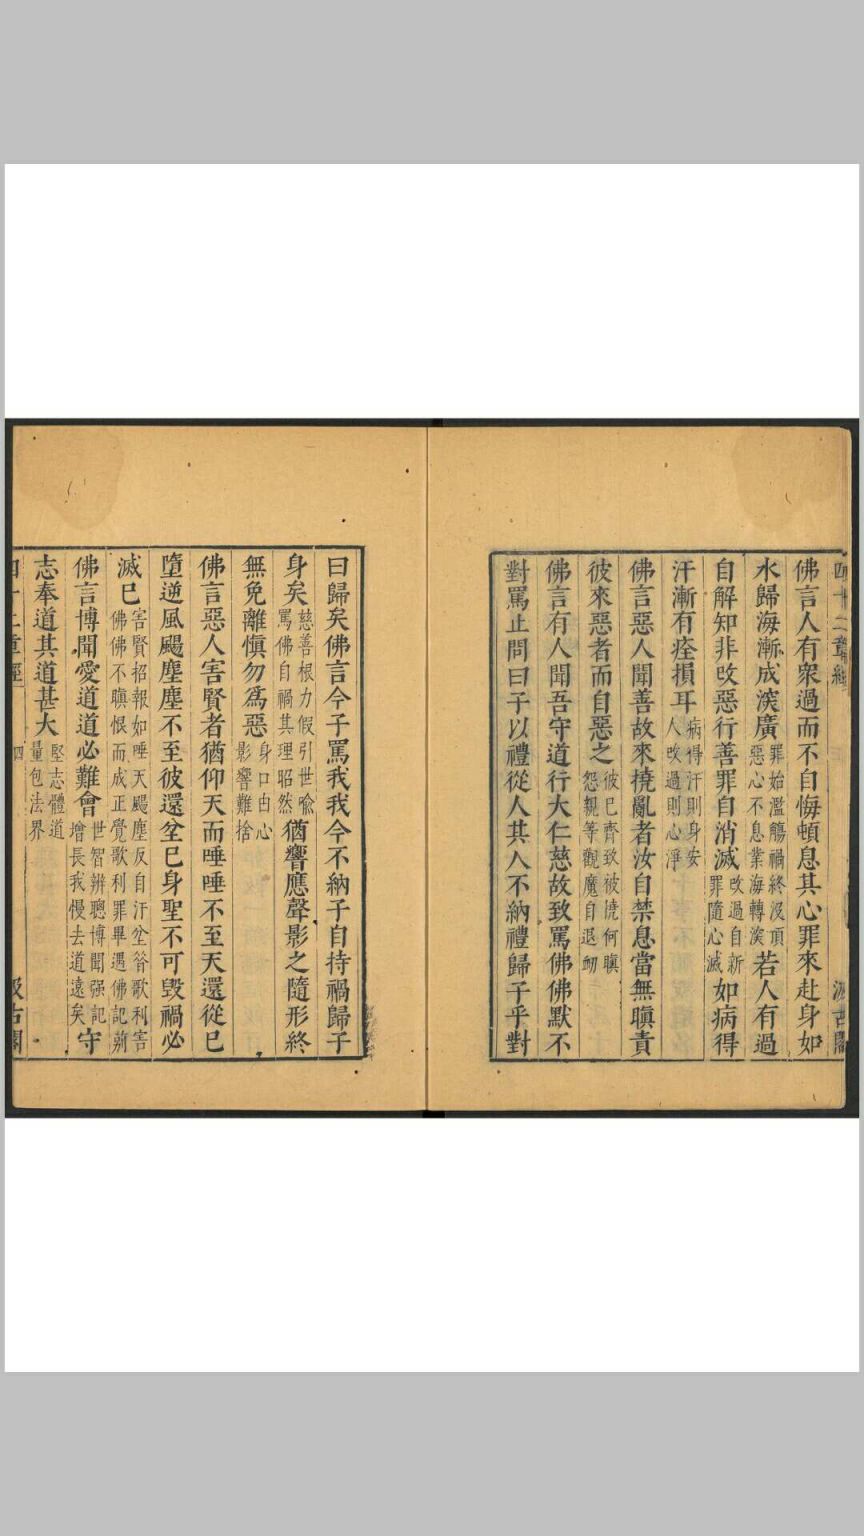 四十二章經 汲古閣
佛言人有衆過而不自悔頓息其心罪來赴身如
水歸海漸成㴱廣罪始濫觴禍終沒頂惡心不息業海轉㴱若人有過
自解知非攺惡行善罪自消滅攺過自新罪隨心滅如病得
汗漸有痊損耳病得汗則身安人攺過則心淨
佛言惡人聞善故來撓亂者汝自禁息當無瞋責
彼來惡者而自惡之彼巳齊致被撓何瞋怨親等觀魔自退衂
佛言有人聞吾守道行大仁慈故致罵佛佛默不
對罵止問曰子以禮從人其人不納禮歸子乎對
曰歸矣佛言今子罵我我今不納子自持禍歸子
身矣慈善根力假引世喩罵佛自禍其理昭然猶響應聲影之隨形終
無免離愼勿爲惡身口由心影響難捨
佛言惡人害賢者猶仰天而唾唾不至天還從巳
墮逆風颺塵塵不至彼還坌巳身聖不可毀禍必
滅巳害賢招報如唾天颺塵反自汙坌昝歌利害佛佛不瞋恨而成正覺歌利罪畢遇佛記莂
佛言博聞愛道道必難會世智辨聰博聞强記增長我慢去道遠矣守
志奉道其道甚大堅志體道量包法界
四十二章經 四 汲古閣